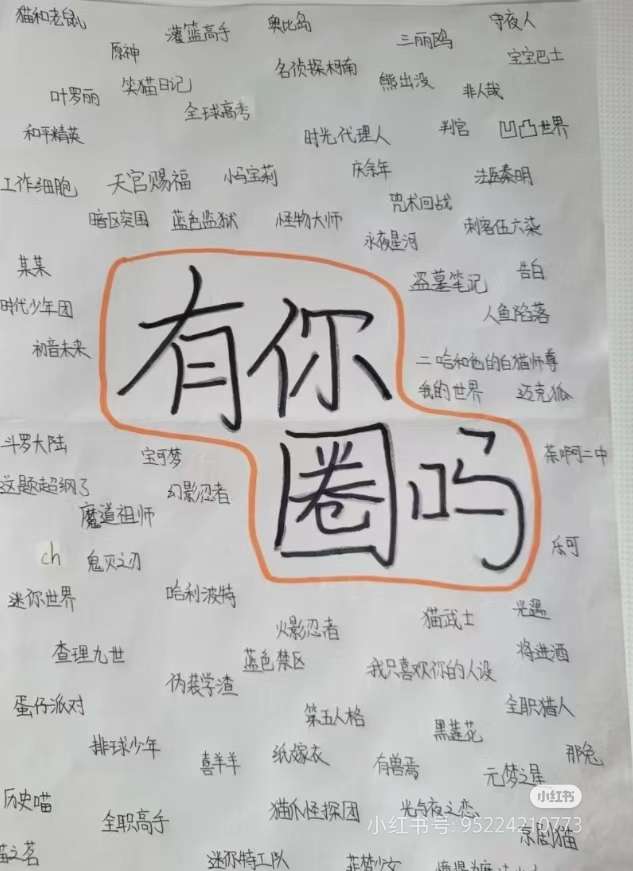 猫和老鼠
灌篮高手
奥比岛
守夜人
原神
三丽鸥
名侦探柯南
宝宝巴士
叶罗丽
笑猫日记
熊出没
非人哉
全球高考
和平精英
时光代理人
判官
凹凸世界
工作细胞
天官赐福
小马宝莉
庆余年
法医秦明
咒术回战
暗区突围
蓝色监狱
怪物大师
刺客伍六柒
永夜星河
某某
盗墓笔记
告白
时代少年团
人鱼陷落
初音未来
有你
圈吗
二哈和他的白猫师尊
我的世界
迈克狐
斗罗大陆
宝可梦
茶啊二中
这题超纲了
幻影忍者
魔道祖师
ch
鬼灭之刃
乐可
迷你世界
哈利波特
猫武士
光遇
火影忍者
查理九世
蓝色禁区
我只喜欢你的人设
将进酒
伪装学渣
蛋仔派对
第五人格
全职猎人
黑莲花
排球少年
喜羊羊
纸嫁衣
有兽焉
那兔
元梦之星
小红书
历史喵
全职高手
猫爪怪探团
光与夜之恋
小红书号: 95224210773
京剧猫
迷你特工队